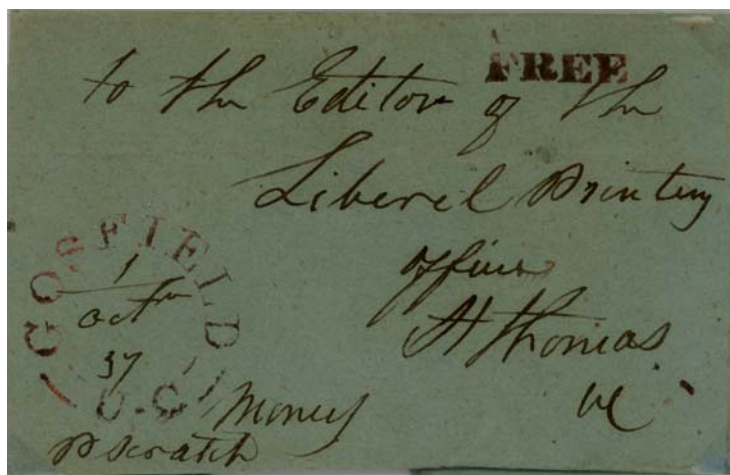 FREE
to the Editor of the
Liberel Printing
office
St Thomas
UC
GOSFIELD U.C
1
Octr
37
Money